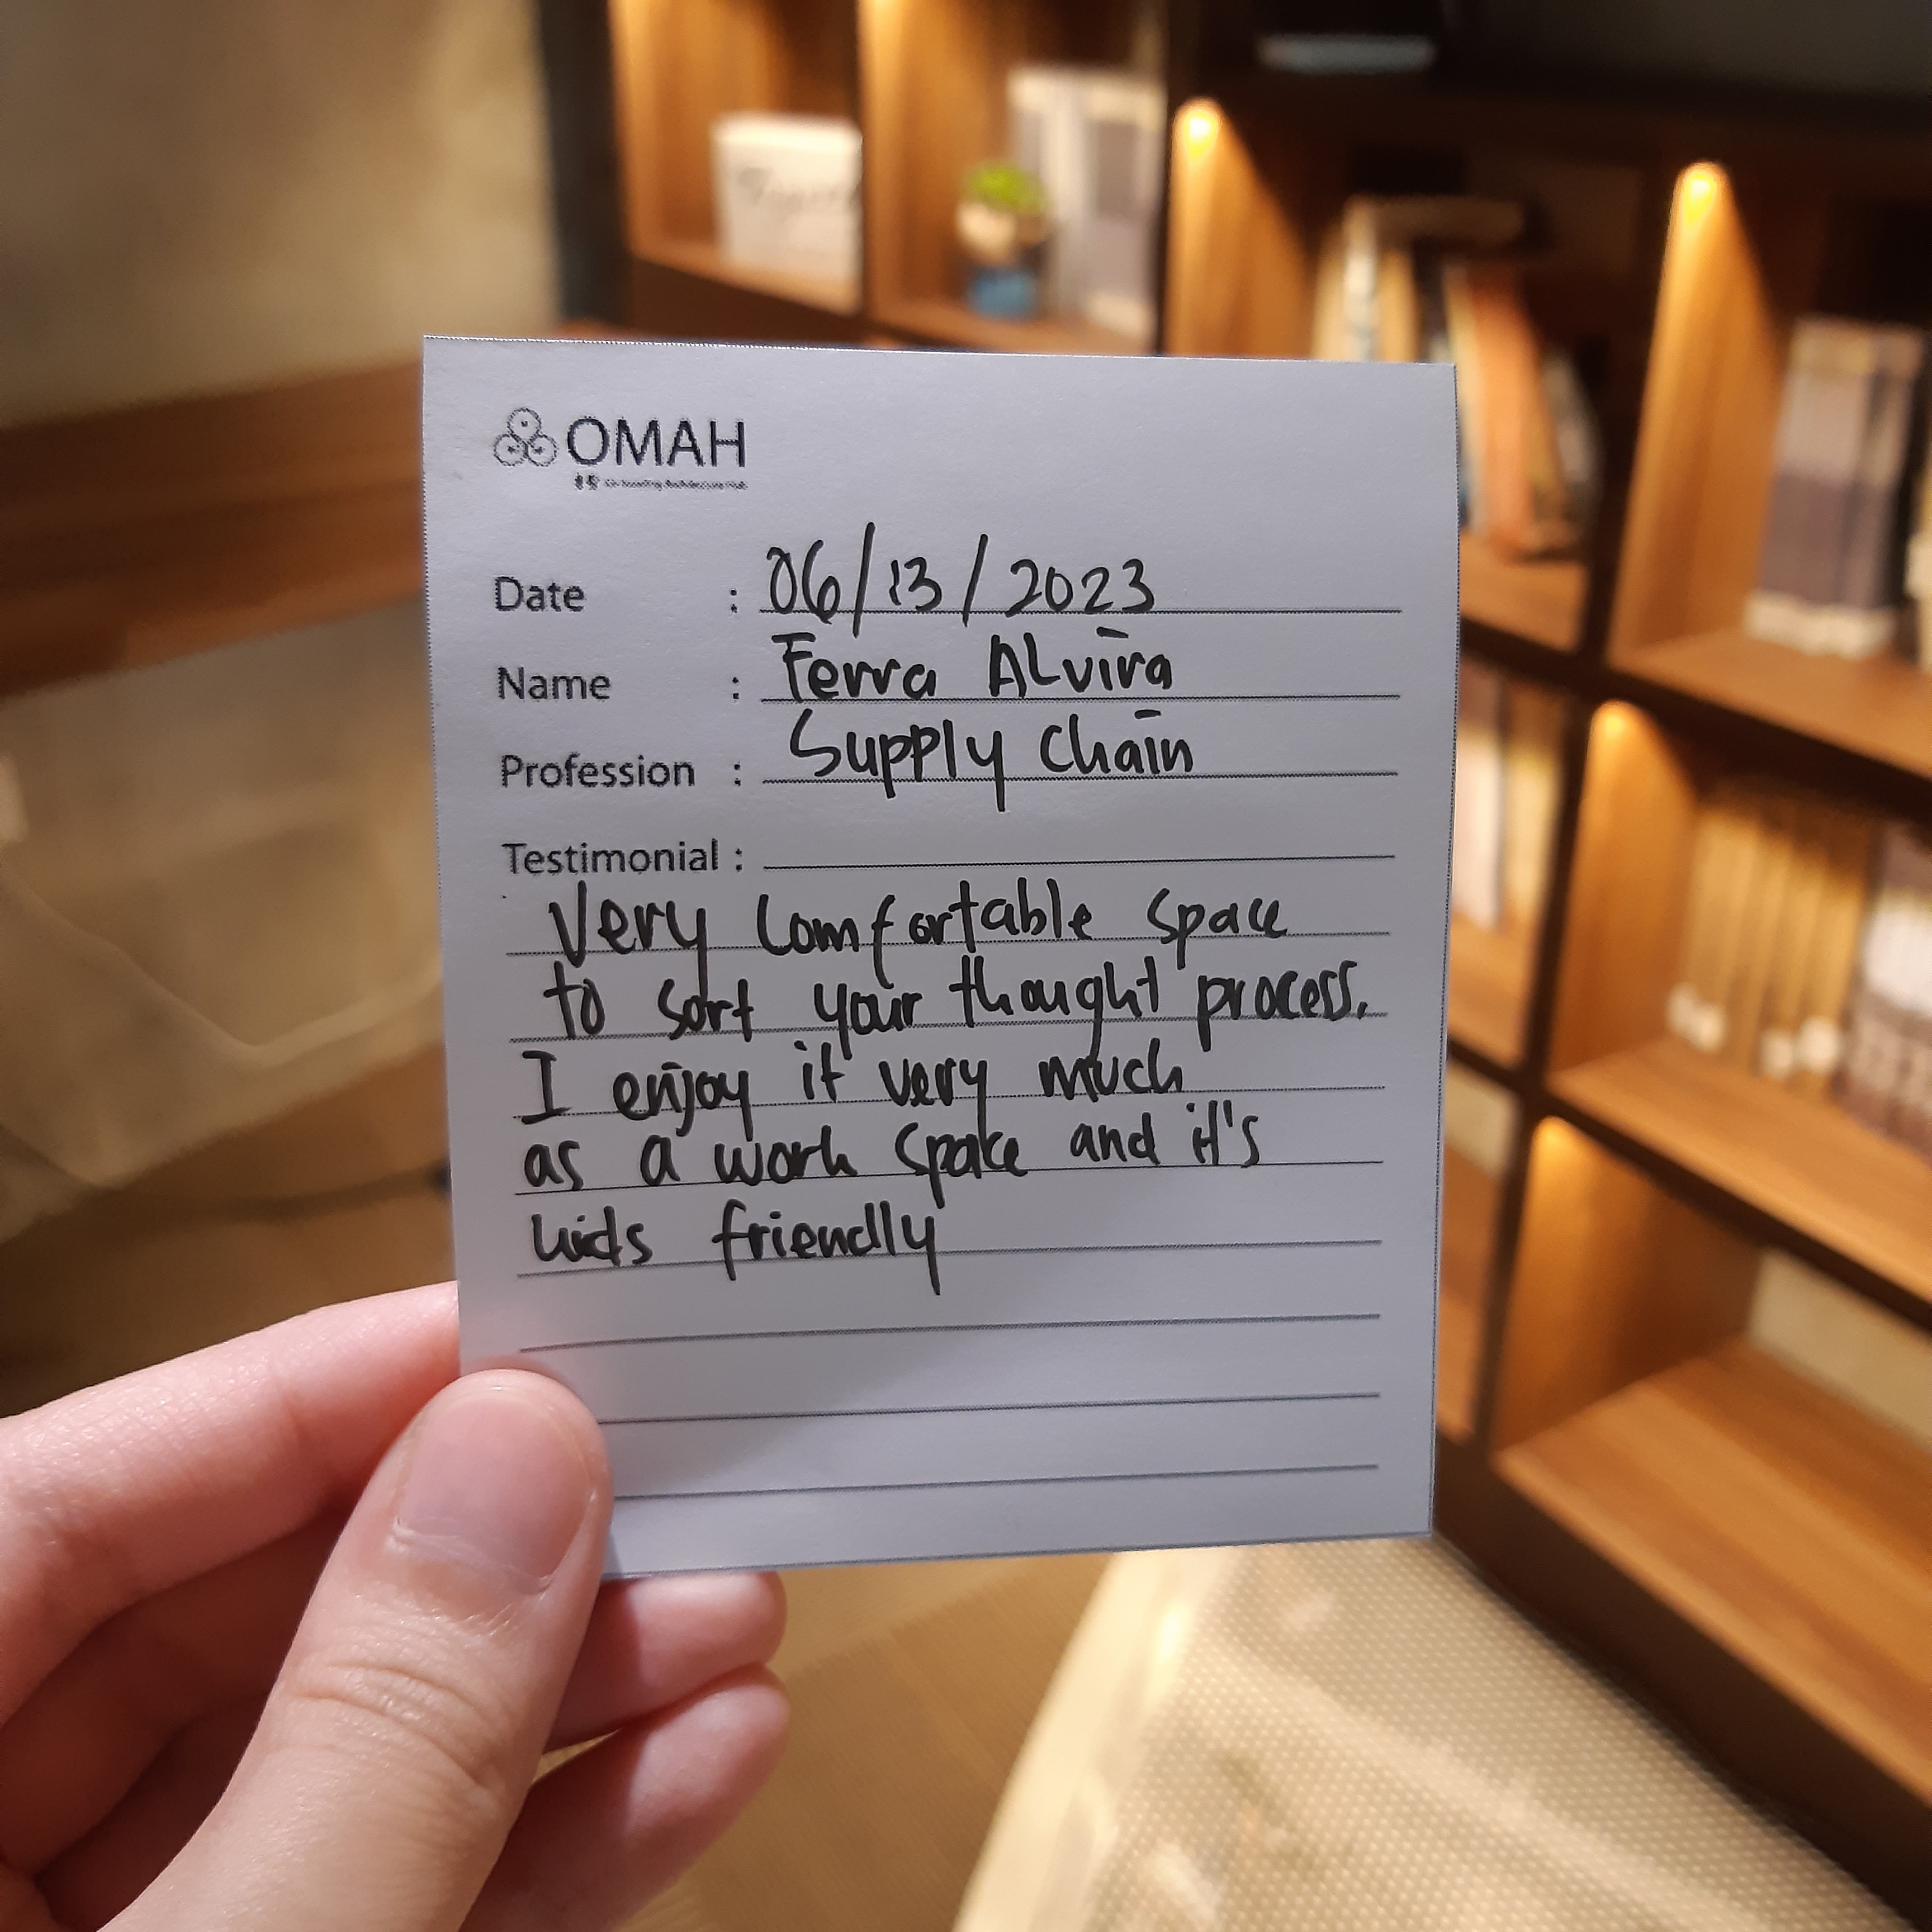 OMAH
Date : 06/13/2023
Name : Ferra Alvira
Profession : Supply Chain
Testimonial :
Very Comfortable space
to sort your thought process.
I enjoy it very much
as a work space and it's
kids friendly